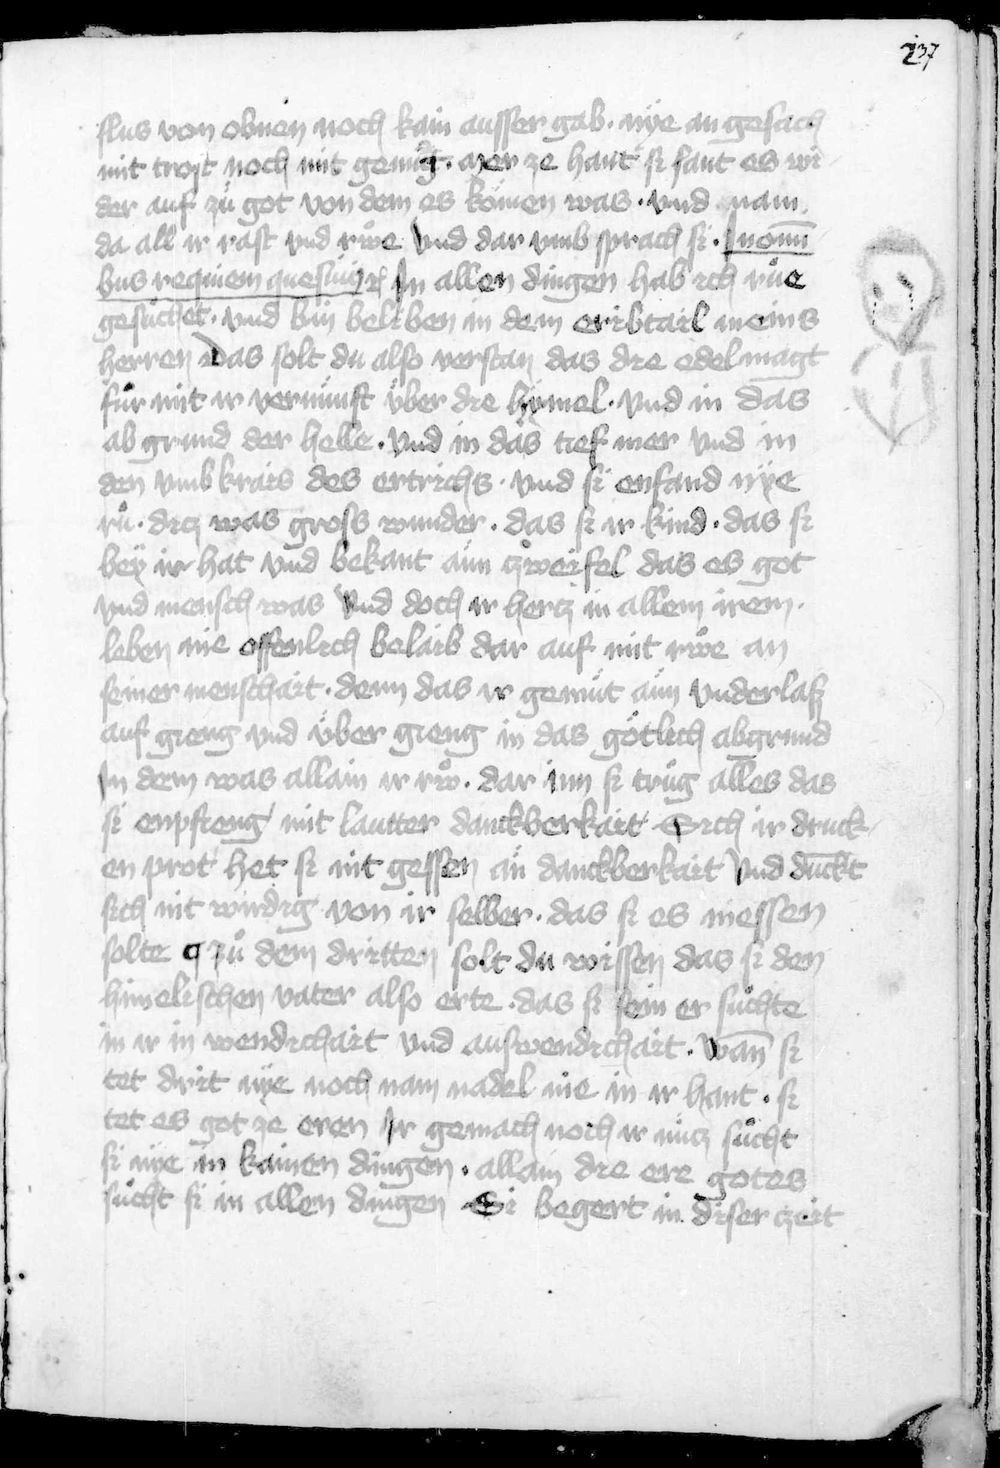 237
flus von obnen noch kain ausser gab · nÿe an gesach
mit trost noch mit genüg · aver ze hant si sant es wi
der auf zů got von dem es kömen was · vnd nam
da all ir rast vnd rwͦe Vnd dar vmb sprach si · In om̄i
bus requiem quesiui In allen dingen hab ich růe
gesůchet · vnd bin beliben in dem eribtail meins
herren Das solt du also verstan das die edel magt
fůr mit ir vernunft über die hymel · Vnd in das
ab grund der helle · Vnd in das tief mer vnd in
den vmbkrais des ertrichs · vnd si enfand nÿe
rů · ditz was gross wunder · das si ir kind · das si
beÿ ir hat vnd bekant aün zweifel das es got
vnd mensch was Vnd doch ir hertz in allem irem
leben nie offenlich belaib dar auf mit rwͦe an
seiner menschait · denn das ir gemüt aün vnderlasz
auf gieng vnd über gieng in das götlich abgrund
In dem was allain ir rwͦ · dar inn si trůg alles das
si enpfieng mit lautter danckberkait Sich ir druck
en prot het si nit gessen aü danckberkait Vnd duckt
sich nit wirdig von ir selber · das si es niessen
solte ¶ zů dem dritten solt du wissen das si den
himelischen vater also erte · das si sein er sůchte
in ir in wendichait vnd auswendichait · Wan̄ si
tet dirit nÿe noch nam nadel nie in ir hant · si
tet es got ze eren Ir gemach noch ir nutz sůcht
si nÿe in kainen dingen · allain die ere gotes
sůcht si in allen dingen Si begert in diser zeit